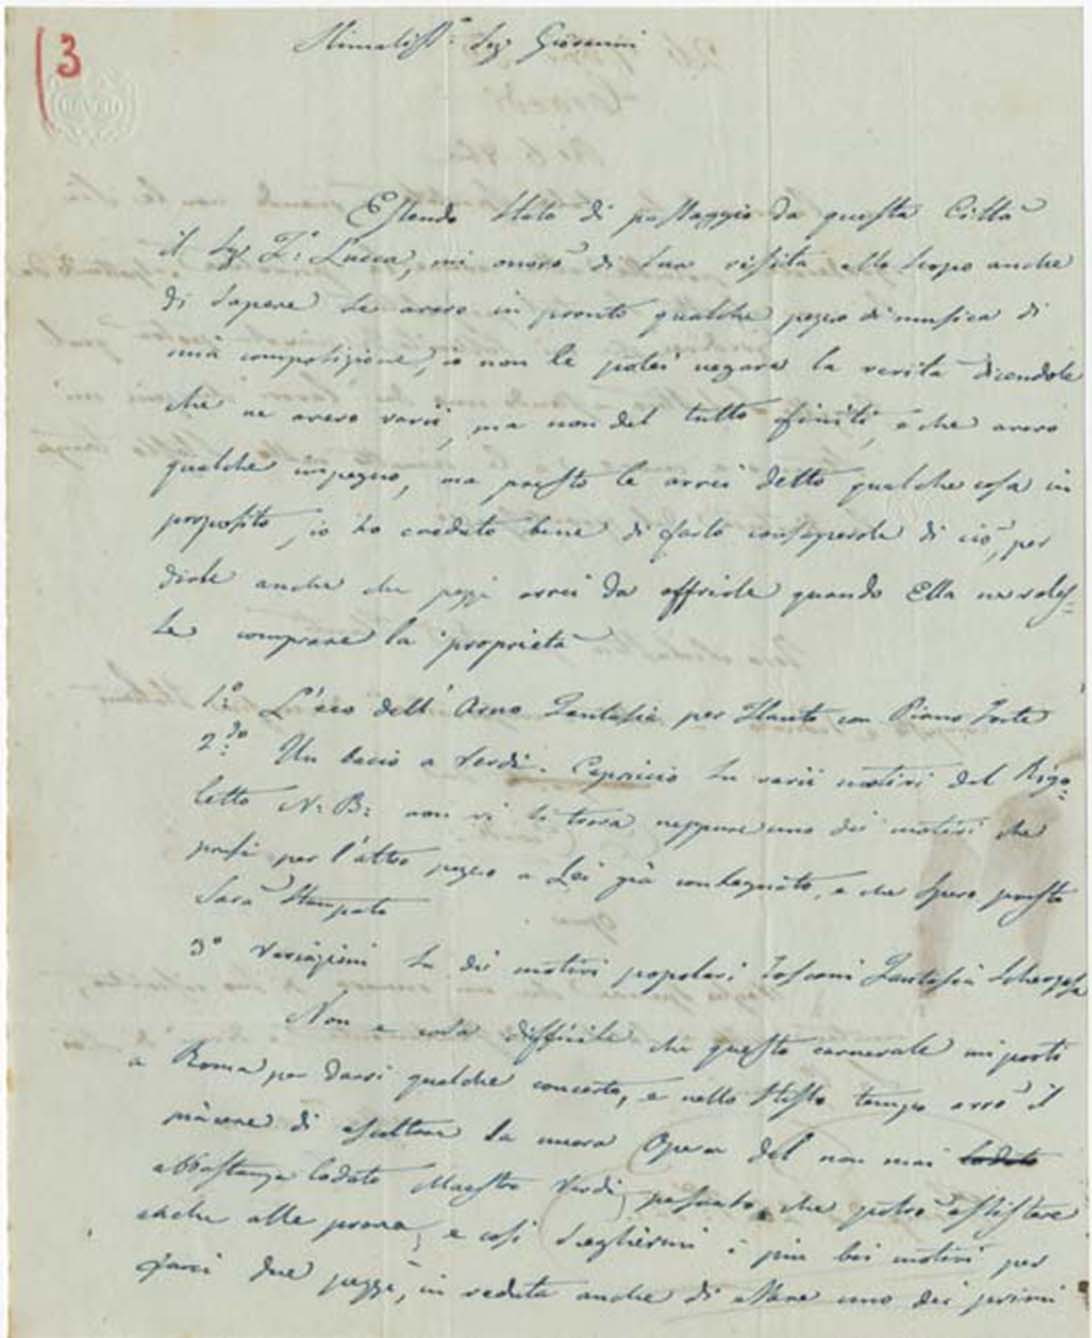 3
Stimatiss.º Sig.r Giovanni
Essendo stato di passaggio da questa Città
il Sig.r F.º Lucca, mi onorò di sua visita allo scopo anche
di sapere se avevo in pronto qualche pezzo di musica di
mia composizione, io non le potei negare la verità dicendole
che ne avevo varii, ma non del tutto finiti, e che avevo
qualche impegno, ma presto le avrei detto qualche cosa in
proposito, io ho creduto bene di farlo consapevole di ciò, per
dirle anche che pezzi avrei da offrirle quando Ella ne voles=
se comprare la proprietà
1.º L'eco dell'Arno Fantasia per Flauto con Piano Forte
2.do Un bacio a Verdi. Capriccio su varii motivi del Rigo=
letto N: B: non vi si trova neppure uno dei motivi che
presi per l'altro pezzo a Lei già consegnato, e che spero presto
sarà stampato
3º Variazioni su dei motivi popolari Toscani Fantasia Scherzosa
Non è cosa difficile che questo carnevale mi porti
a Roma per darvi qualche concerto, e nello stesso tempo avrò il
piacere di ascoltare la nuova Opera del non mai lodato
abbastanza lodato Maestro Verdi, che potrò assistere
anche alle prove, e così scegliermi i più bei motivi per
farci due pezzi, in veduta anche di essere uno dei primi